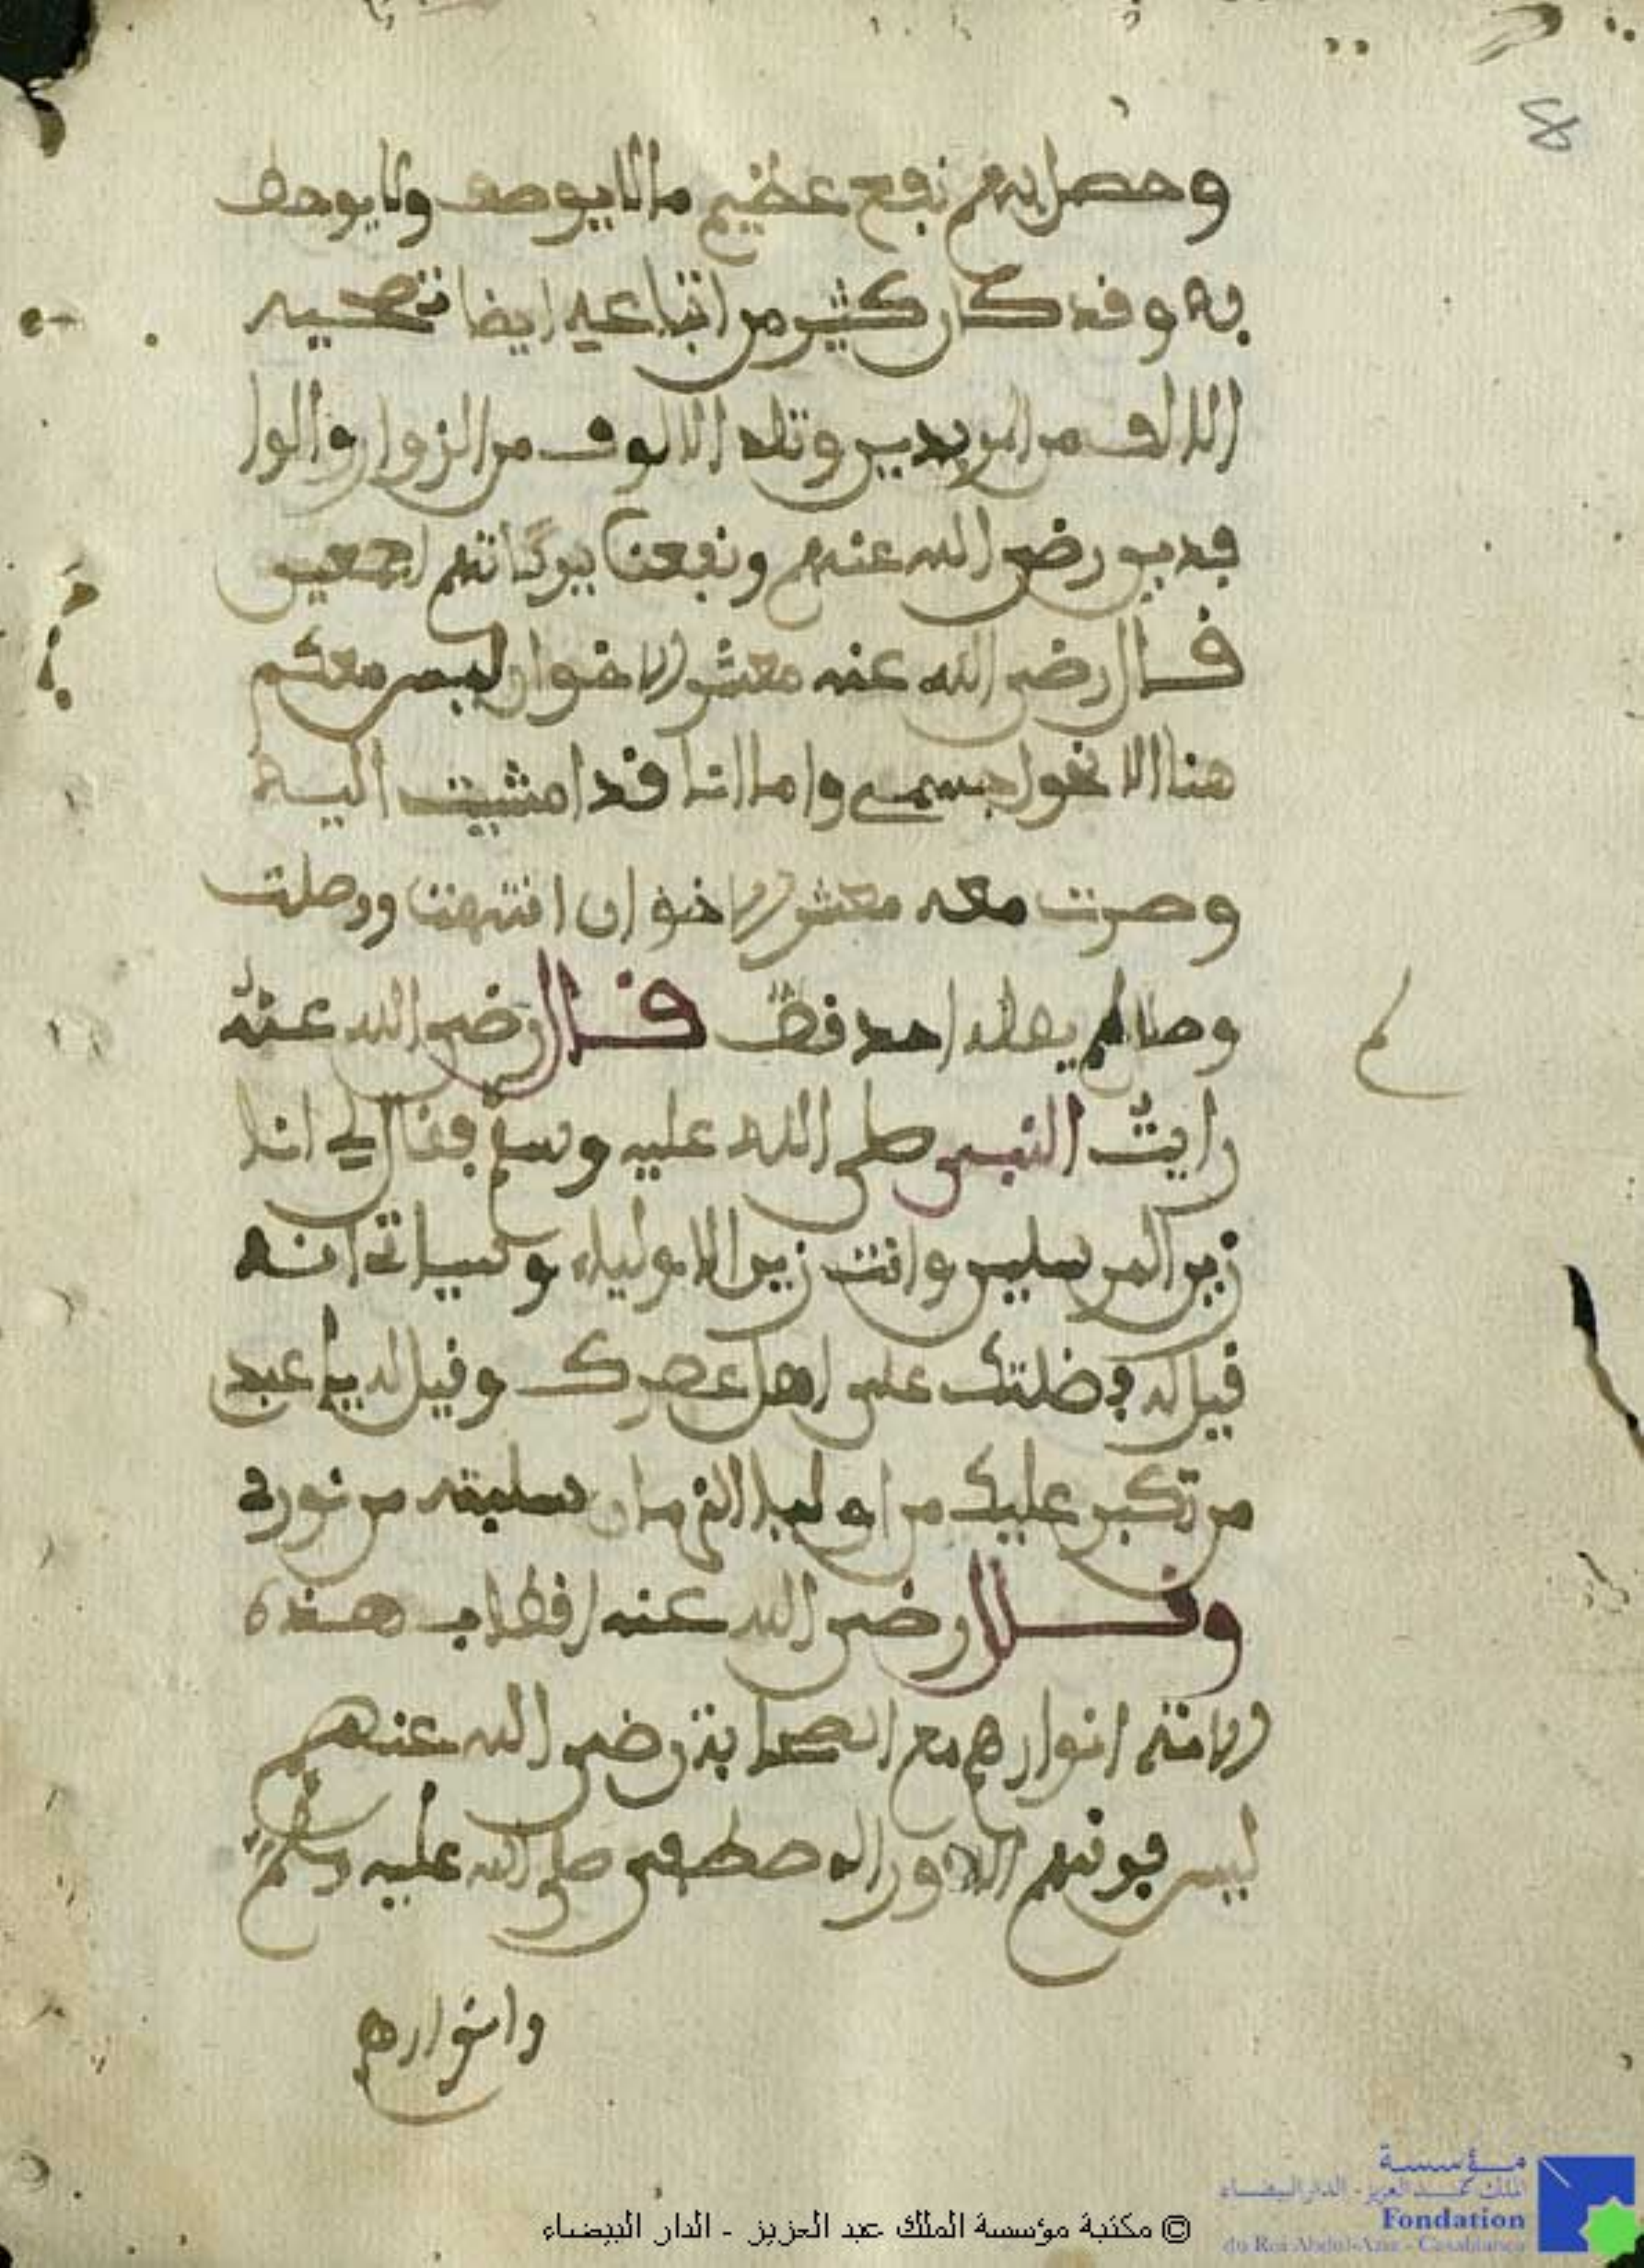 وحصل بهم نفع عظيم ما لا يوصف ولا يوحف
به وقد كان كثير من اتباعه ايضا تصحبه
الالف من المريدين وتلد الالوف من الزوار والوا
فدين رضي الله عنهم ونفعنا ببركاتهم اجمعين
قال رضي الله عنه معشر الاخوان ليس معكم
هنا الا نحو جسمي واما انا قد امشيت اليه
وصرت معه معشر الاخوان انتبهت ووصلت
وصالم يصله احد قط قال رضي الله عنه
رايت النبي صلى الله عليه وسلم فقال لي انا
زين المرسلين وانت زين الاولياء وسياتي انه
قيل له فضلتك على اهل عصرك وقيل له يا عبد
من تكبر عليك من اولياء الزمان سلبته من نوره
وقال رضي الله عنه اقطاب هذه
الامة انوارهم مع الصحابة رضي الله عنهم
ليس فوقهم الا نور المصطفى صلى الله عليه وسلم
وانوارهم
© مكتبة مؤسسة الملك عبد العزيز - الدار البيضاء
مؤسسة
الملك عبد العزيز - الدار البيضاء
Fondation
du Roi Abdul-Aziz - Casablanca